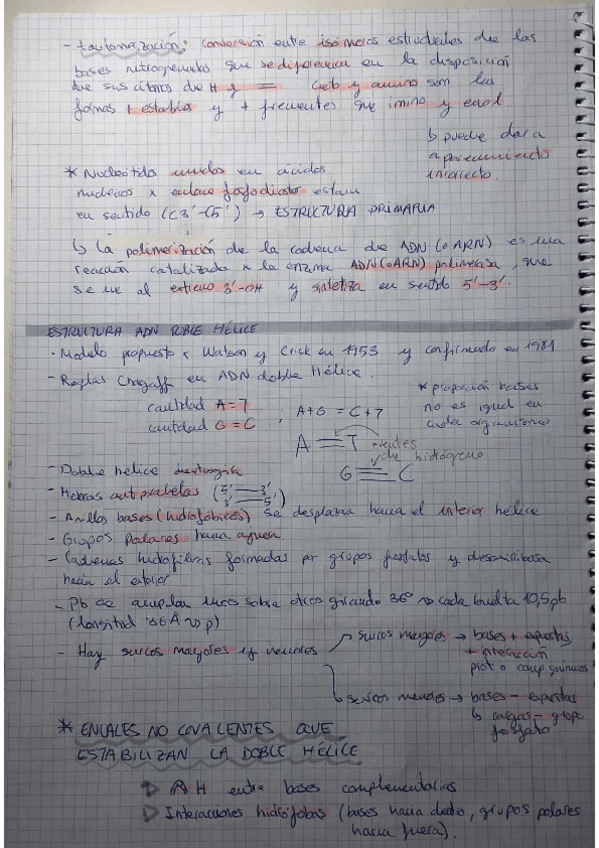 - tautomerización: conversión entre isómeros estructurales de las
bases nitrogenadas que se diferencian en la disposición
de sus átomos de H y = ceto y amino son las
formas + estables y + frecuentes que imino y enol
↳ puede dar a
apareamiento
incorrecto.
* Nucleótidos unidos en ácidos
nucleicos x enlace fosfodiester están
en sentido (C3'-C5') → ESTRUCTURA PRIMARIA
↳ La polimerización de la cadena de ADN (o ARN) es una
reacción catalizada x la enzima ADN(oARN) polimerasa, que
se une al extremo 3'-OH y sintetiza en sentido 5'-3'.
ESTRUCTURA ADN DOBLE HÉLICE
- Modelo propuesto x Watson y Crick en 1953 y confirmado en 1981
- Reglas Chargaff en ADN doble hélice.
cantidad A=T
cantidad G=C
; A+G = C+T
* proporción bases
no es igual en
cada organismo
A=T
puentes
de hidrógeno
G≡C
- Doble hélice dextrógira
- Hebras antiparalelas (5'=3' 3'=5')
- Anillos bases (hidrofóbicos) se desplazan hacia el interior hélice
- Grupos polares hacia afuera
- Cadenas hidrofílicas formadas por grupos fosfatos y desoxirribosa
hacia el exterior
- Pb se acumulan unos sobre otros girando 36° cada vuelta 10,5pb
(longitud 36Å)
- Hay surcos mayores y menores
surcos mayores → bases + expuestas
+ interacción
prot o comp químicos
surcos menores → bases - expuestas
↳ cargas - grupo
fosfato
* ENLACES NO COVALENTES QUE
ESTABILIZAN LA DOBLE HÉLICE
▷ P H entre bases complementarias
▷ Interacciones hidrófobas (bases hacia dentro, grupos polares
hacia fuera).